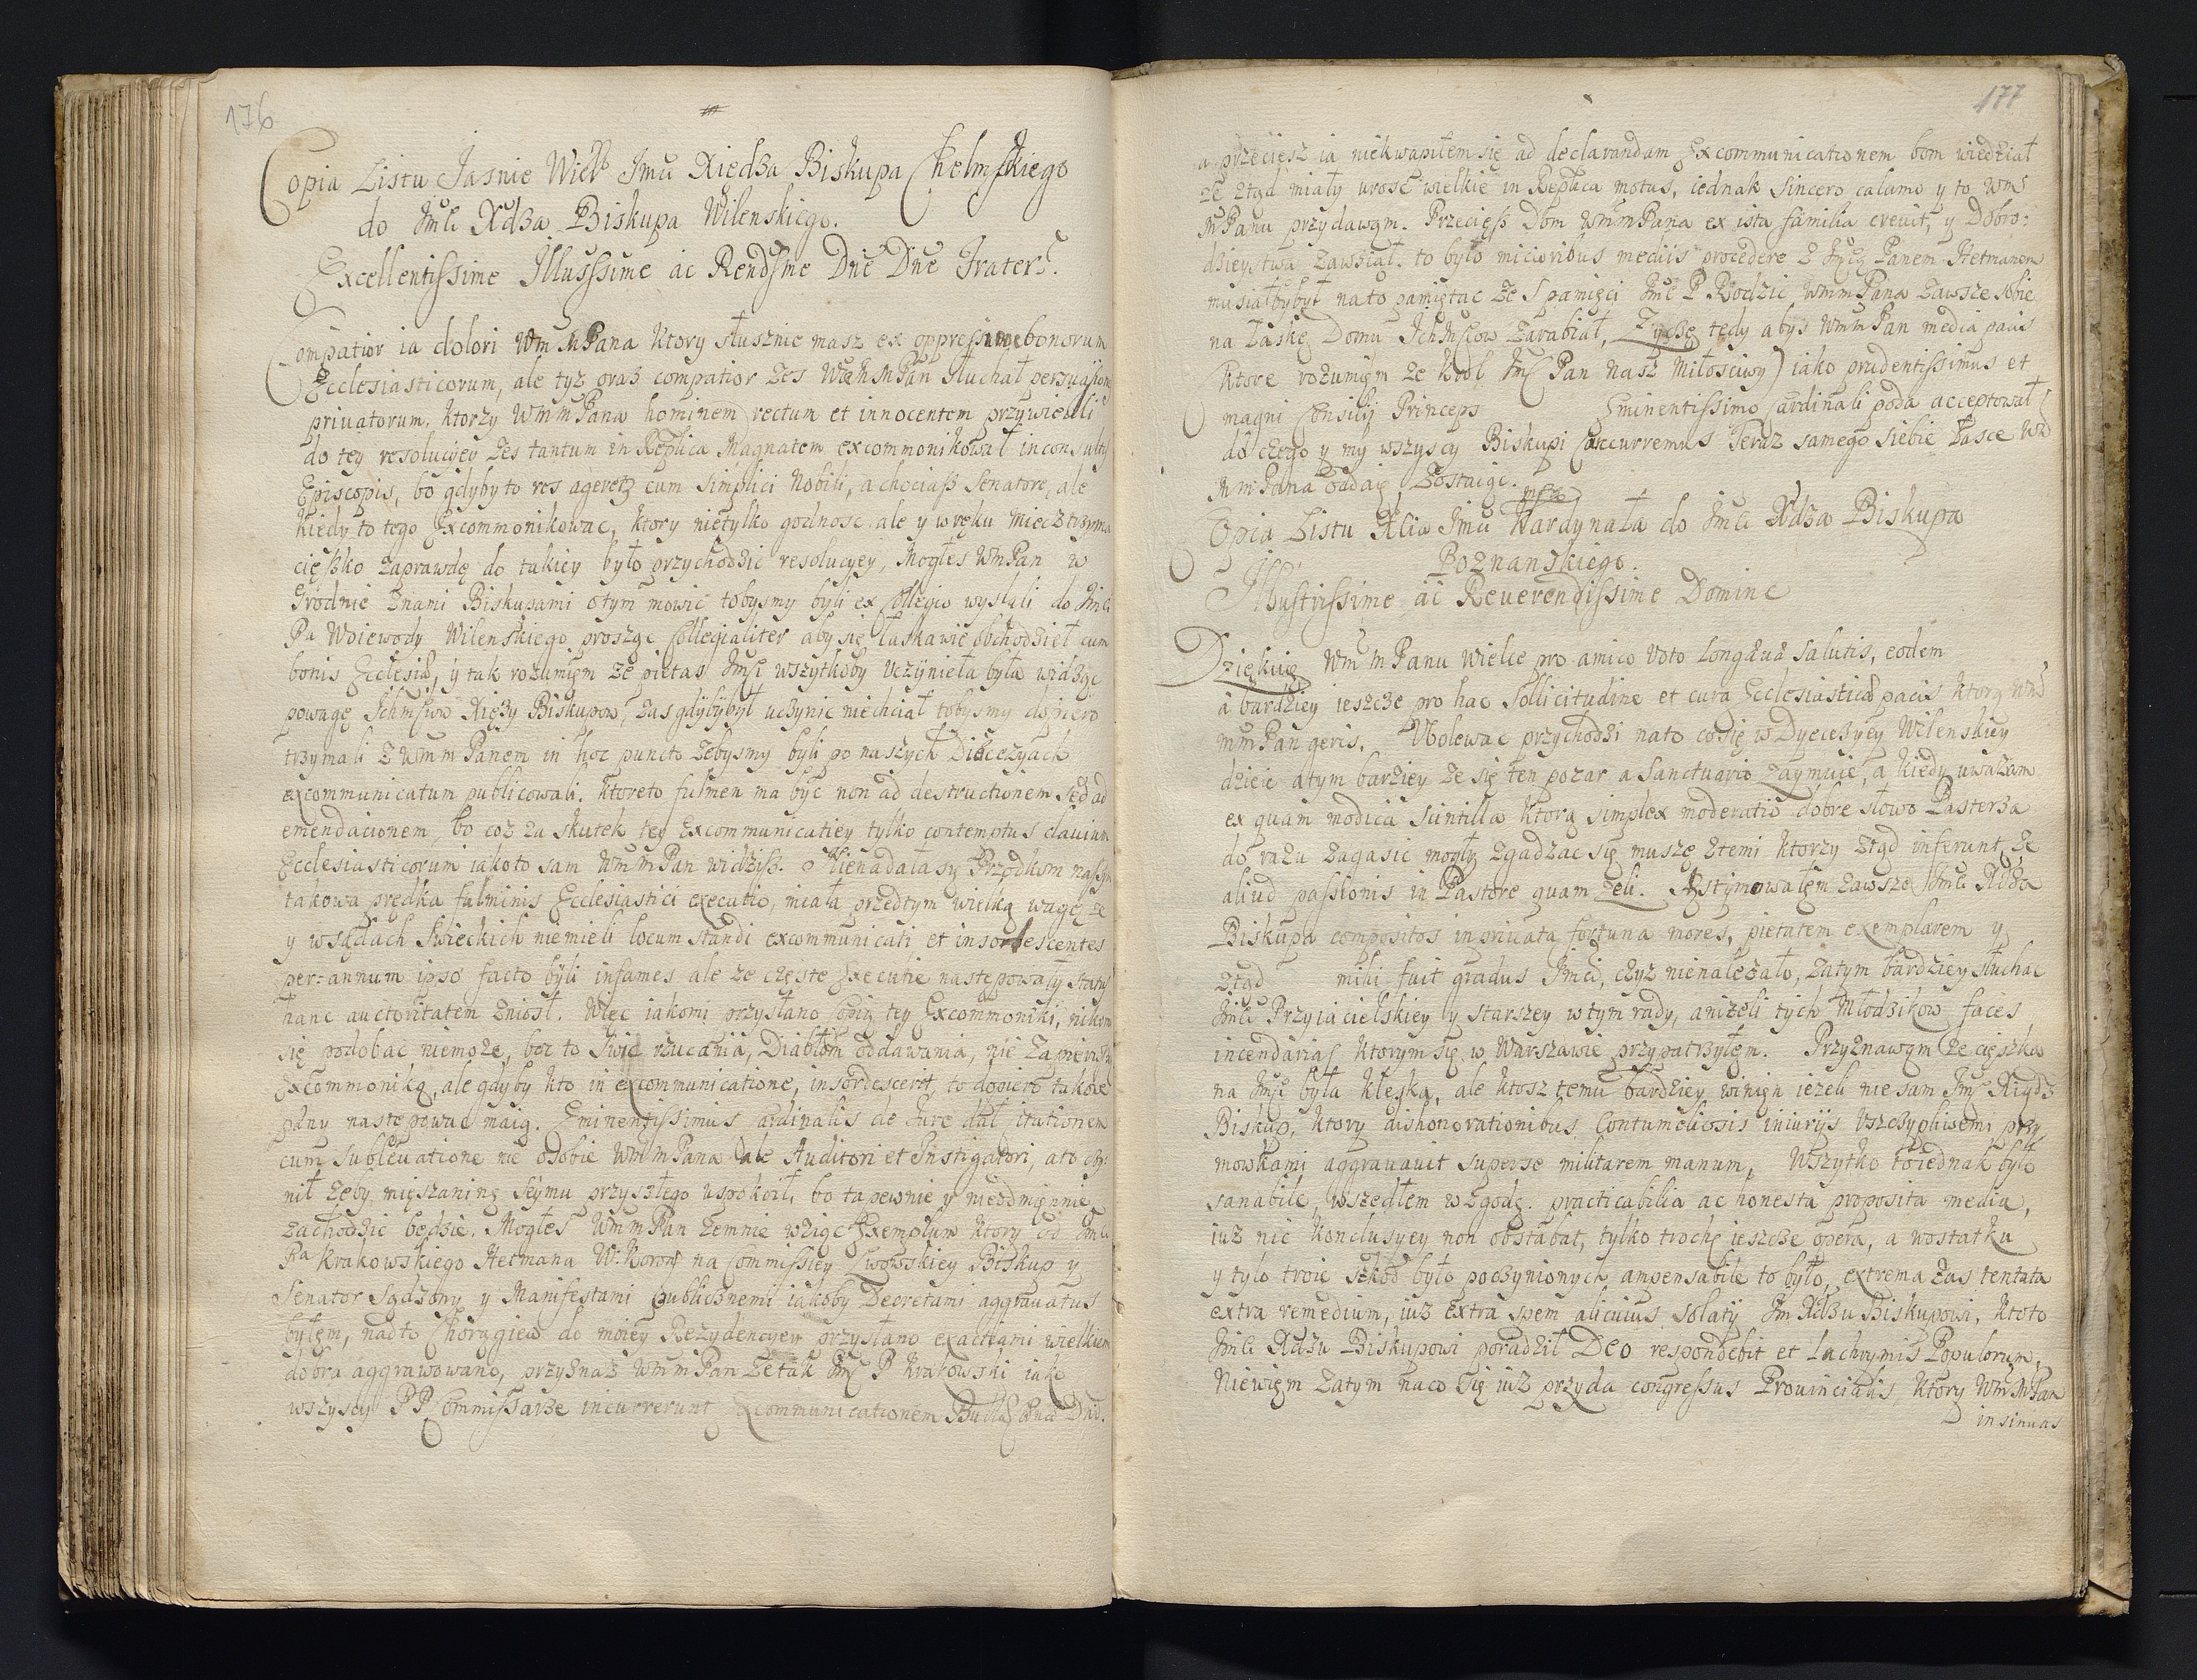 176
Copia Listu Jasnie Wiel Jmci Xiedza Biskupa Chelmskiego
do Jmci Xdza Biskupa Wilenskiego.
Excellentissime Illussime ac Rendsme Dne Dne Frater.
Compatior ia dolori Wm M Pana ktory słusznie masz ex oppressione bonorum
Ecclesiasticorum, ale tyz oraz compatior zes WmMMPan słuchał persuasione
priuatorum, ktorzy WmmPana hominem rectum et innocentem przywiedli
do tey resolucyey zes tantum in Replica Magnatem excommonikował inconsultis
Episcopis, bo gdyby to res ageretz cum simplici Nobili, a chociasz Senatore, ale
kiedy to tego Excommonikowac, ktory nietylko godnosc ale y w ręku miecz trzyma
cięszko zaprawdę do takiey było przychodzic resolucyey, Mogłes WmPan w
Grodnie znami Biskupami otym mowic tobysmy byli ex Collegio wysłali do Jmci
Pa Woiewody Wilenskiego prosząc Collegialiter aby się łaskawie obchodzieł cum
bonis Ecclesiæ, y tak rozumięm ze pietas Jmsci wszytkoby uczynieła była widząc
powagę Ichmsciow Xięzy Biskupow, zas gdybybył uczynic niechciał tobysmy dopiero
trzymali z WmmPanem in hoc puncto zebysmy byli po naszych Diœcezyach
excommunicatum publicowali. Ktoreto fulmen ma być non ad destructionem sed ad
emendacionem, bo coz za skutek tey Excommunicatiey tylko contemptus clauium
Ecclesiasticorum iakoto sam WmmPan widzisz. Nienadała się Przodkom naszym
takowa prędka fulminis Ecclesiastici executio, miała przedtym wielką wagę ze
y wsądach swieckich niemieli locum standi excommunicati et insordescentes
per: annum ipso facto byli infames ale ze częste Executie następowały status
hanc auctoritatem zniosł. Więc iakomi przysłano Copią tey Excommoniki, nikom
się podobac niemoze, boc to swiec rzucania, Diabłom oddawania, nie zamierzy
Excommoniką, ale gdyby kto in excommunicatione, insordesceret, to dopiero takowe
pany następowac maią. Eminentissimus Cardinalis de Iure dał citationem
cum subleuatione nie osobie WmmPana ale Auditori et Instigatori, a to czy:
nił zeby mięszaninę Seymu przyszłego uspokoił, bo ta pewnie y nieodmięnnie
zachodzic będzie. Mogłes WmmPan zemnie wziąc Exemplum ktory od Jmci
Pa Krakowskiego Hetmana W. Koron na Commissiey Lwowskiey Biskup y
Senator Sądzony y Manifestami publicznemi iakoby Decretami aggrauatus
byłęm, nadto Chorągiew do moiey Rezydencyey przysłano exactiami wielkiem
dobra aggrawowano, przyznasz WmmPan ze tak Jmsc P Krakowski iako
wszyscy PP Commissarze incurrerunt Excommunicationem Bullæ Cœnæ Dni.
177
a przeciesz ia niekwapiłem się ad declarandam Excommunicationem bom wiedział
ze ztąd miały urosć wielkie in Replica motus, iednak sincero calamo y to Wm
MPanu przydawąm. Przeciesz Dom WmmPana ex ista familia creuit, y Dobro:
dzieystwa zawział. to było micioribus mediis procedere z Jmscią Panem Hetmanem
musiałbybył nato pamiętac ze S pamięci Jmc P Rodzic WmmPana zawsze sobie
na łaskę Domu IchMsciow zarabiał, Zyczę tedy abys WmmPan media pacis
ktore rozumięm ze Krol Jmsc Pan Nasz Miłosciwy) iako prudentissimus et
magni Consilij Princeps Eminentissimo Cardinali poda acceptował
do czego y my wszyscy Biskupi concurremus Teraz samego siebie łasce Wm
MmPana oddaię Zostaiąc.
Copia Listu Xcia Jmci Kardynała do Jmci Xdza Biskupa
Poznanskiego.
Illustrissime ac Reuerendissime Domine
Dziękuię WmmPanu wielce pro amico voto longæuæ salutis, eodem
a bardziey ieszcze pro hac sollicitudine et cura Ecclesiasticæ pacis ktorą Wm
mmPan geris. Ubolewac przychodzi nato cosię w Dyecezyey Wilenskiey
dzieie atym barziey ze się ten pozar a Sanctuario zaymuie, a kiedy uwazam
ex quam modica scintilla ktorą simplex moderatio dobre słowo Pasterza
do razu zagasic mogły zgadzac się muszę ztemi ktorzy ztąd inferunt, ze
aliud passionis in Pastore quam zeli. Æstymowałęm zawsze Jmci Xdza
Biskupa compositos in priuata fortuna mores, pietatem exemplarem y
ztąd mihi fuit gradus Jmci, czyz nienalezało, zatym bardziey słuchac
Jmci Przyiacielskiey y starszey wtym rady, anizeli tych Młodzikow faces
incendarias ktorym się w Warszawie przypatrzyłęm. Przyznawąm ze cięszka
na Jmsc była klęska, ale ktosz temu bardziey winięn iezeli nie sam Jmsc Xiądz
Biskup, ktory dishonorationibus Contumeliosis iniuryis uszczypliwemi przy
mowkami aggrauauit superse militarem manum, Wszytko to iednak było
sanabile, wszedłem w zgodę. practicabilia ac honesta proposita media,
iuz nic konclusyey non obstabat, tylko trochę ieszcze opera, a wostatku
y tylo troie szkod było poczynionych ampensabile to było, extrema zas tentata
extra remedium, iuz extra spem alicuius solatij Jm Xdzu Biskupowi, ktoto
Jmci Xdzu Biskupowi poradził Deo respondebit et Lachrymis Populorum,
Niewięm zatym naco się iusz przyda congressus Prouincialis, ktory WmMPan
insinuas